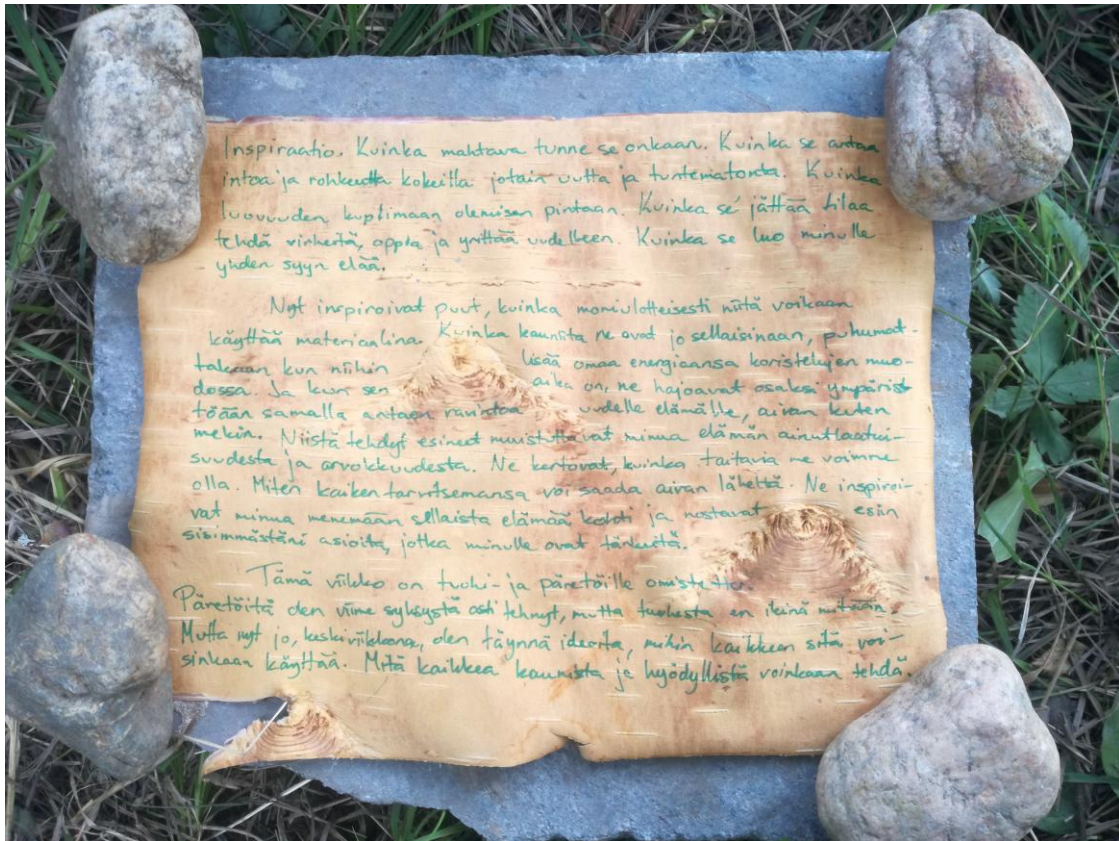 Inspiraatio. Kuinka mahtava tunne se onkaan. Kuinka se antaa
intoa ja rohkeutta kokeilla jotain uutta ja tuntematonta. Kuinka
luovuuden kuplimaan olemisen pintaan. Kuinka se jättää tilaa
tehdä virheitä, oppia ja yrittää uudelleen. Kuinka se luo minulle
yhden syyn elää.
Nyt inspiroivat puut, kuinka moniulotteisesti niitä voikaan
käyttää materiaalina. Kuinka kauniita ne ovat jo sellaisinaan, puhumat-
takaan kun niihin lisää omaa energiaansa koristelujen muo-
dossa. Ja kun sen aika on, ne hajoavat osaksi ympärist
töään samalla antaen ravintoa uudelle elämälle, aivan kuten
mekin. Niistä tehdyt esineet muistuttavat minua elämän ainutlaatui-
suudesta ja arvokkuudesta. Ne kertovat, kuinka taitavia me voimme
olla. Miten kaiken tarvitsemansa voi saada aivan läheltä. Ne inspiroi-
vat minua menemään sellaista elämää kohti ja nostavat esiin
sisimmästäni asioita, jotka minulle ovat tärkeitä.
Tämä viikko on tuohi- ja päretöille omistettu.
Päretöitä olen viime syksystä asti tehnyt, mutta tuohesta en ikinä mitään.
Mutta nyt jo, keskiviikkona, olen täynnä ideoita, mihin kaikkeen sitä voi-
sinkaan käyttää. Mitä kaikkea kaunista ja hyödyllistä voinkaan tehdä.